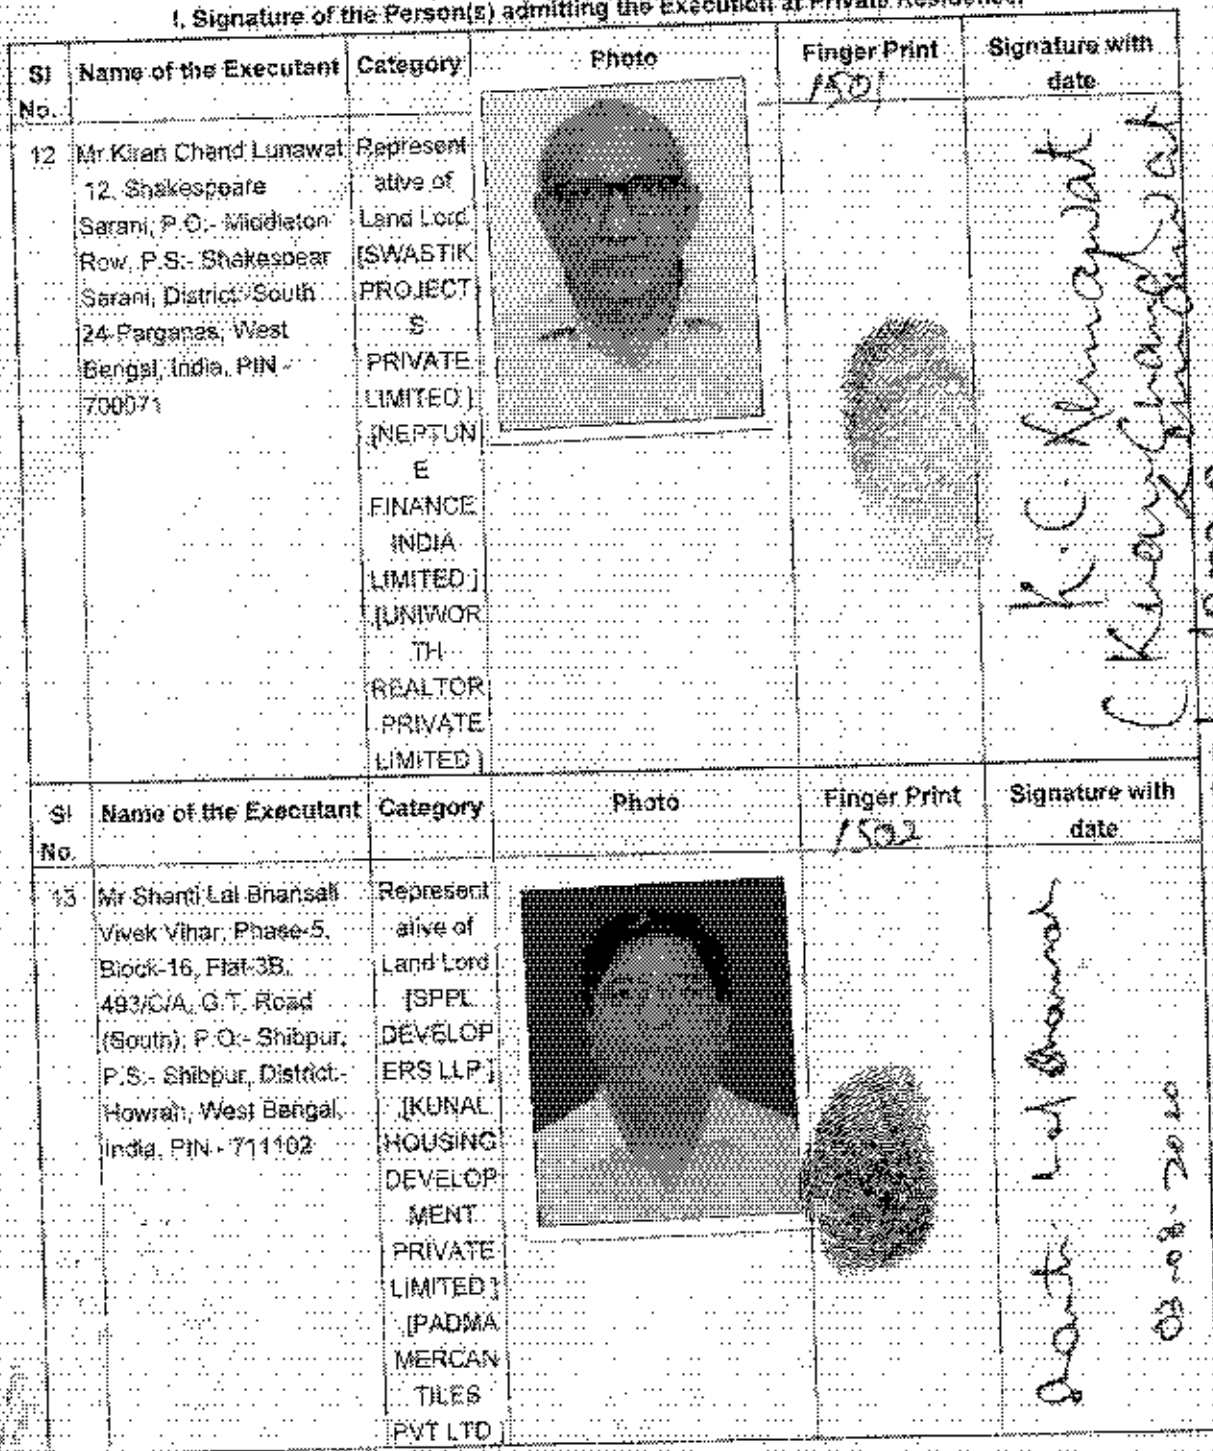 I. Signature of the Person(s) admitting the Execution at Private Residence.
Sl No.
Name of the Executant
Category
Photo
Finger Print
1501
Signature with date
12
Mr Kiran Chand Lunawat
12, Shakespeare
Sarani, P.O:- Middleton
Row, P.S:- Shakespear
Sarani, District:-South
24-Parganas, West
Bengal, India, PIN -
700071
Represent
ative of
Land Lord
[SWASTIK
PROJECT
S
PRIVATE
LIMITED ]
,[NEPTUN
E
FINANCE
INDIA
LIMITED ]
,[UNIWOR
TH
REALTOR
PRIVATE
LIMITED ]
K. C. Lunawat
(Kiran Chand Lunawat
Sl No.
Name of the Executant
Category
Photo
Finger Print
1502
Signature with date
13
Mr Shanti Lal Bhansali
Vivek Vihar, Phase-5,
Block-16, Flat-3B,
493/C/A, G.T. Road
(South), P.O:- Shibpur,
P.S:- Shibpur, District:-
Howrah, West Bengal,
India, PIN - 711102
Represent
ative of
Land Lord
[SPPL
DEVELOP
ERS LLP ]
,[KUNAL
HOUSING
DEVELOP
MENT
PRIVATE
LIMITED ]
,[PADMA
MERCAN
TILES
PVT LTD ]
Shanti Lal Bhansali
03-08-2020